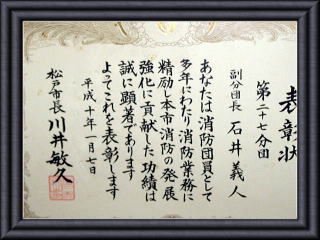 表彰状
第二十七分団
副分団長 石井義人
あなたは消防団員として
多年にわたり消防業務に
精励し本市消防の発展
強化に貢献した功績は
誠に顕著であります
よってこれを表彰します
平成十年一月七日
松戸市長 川井敏久